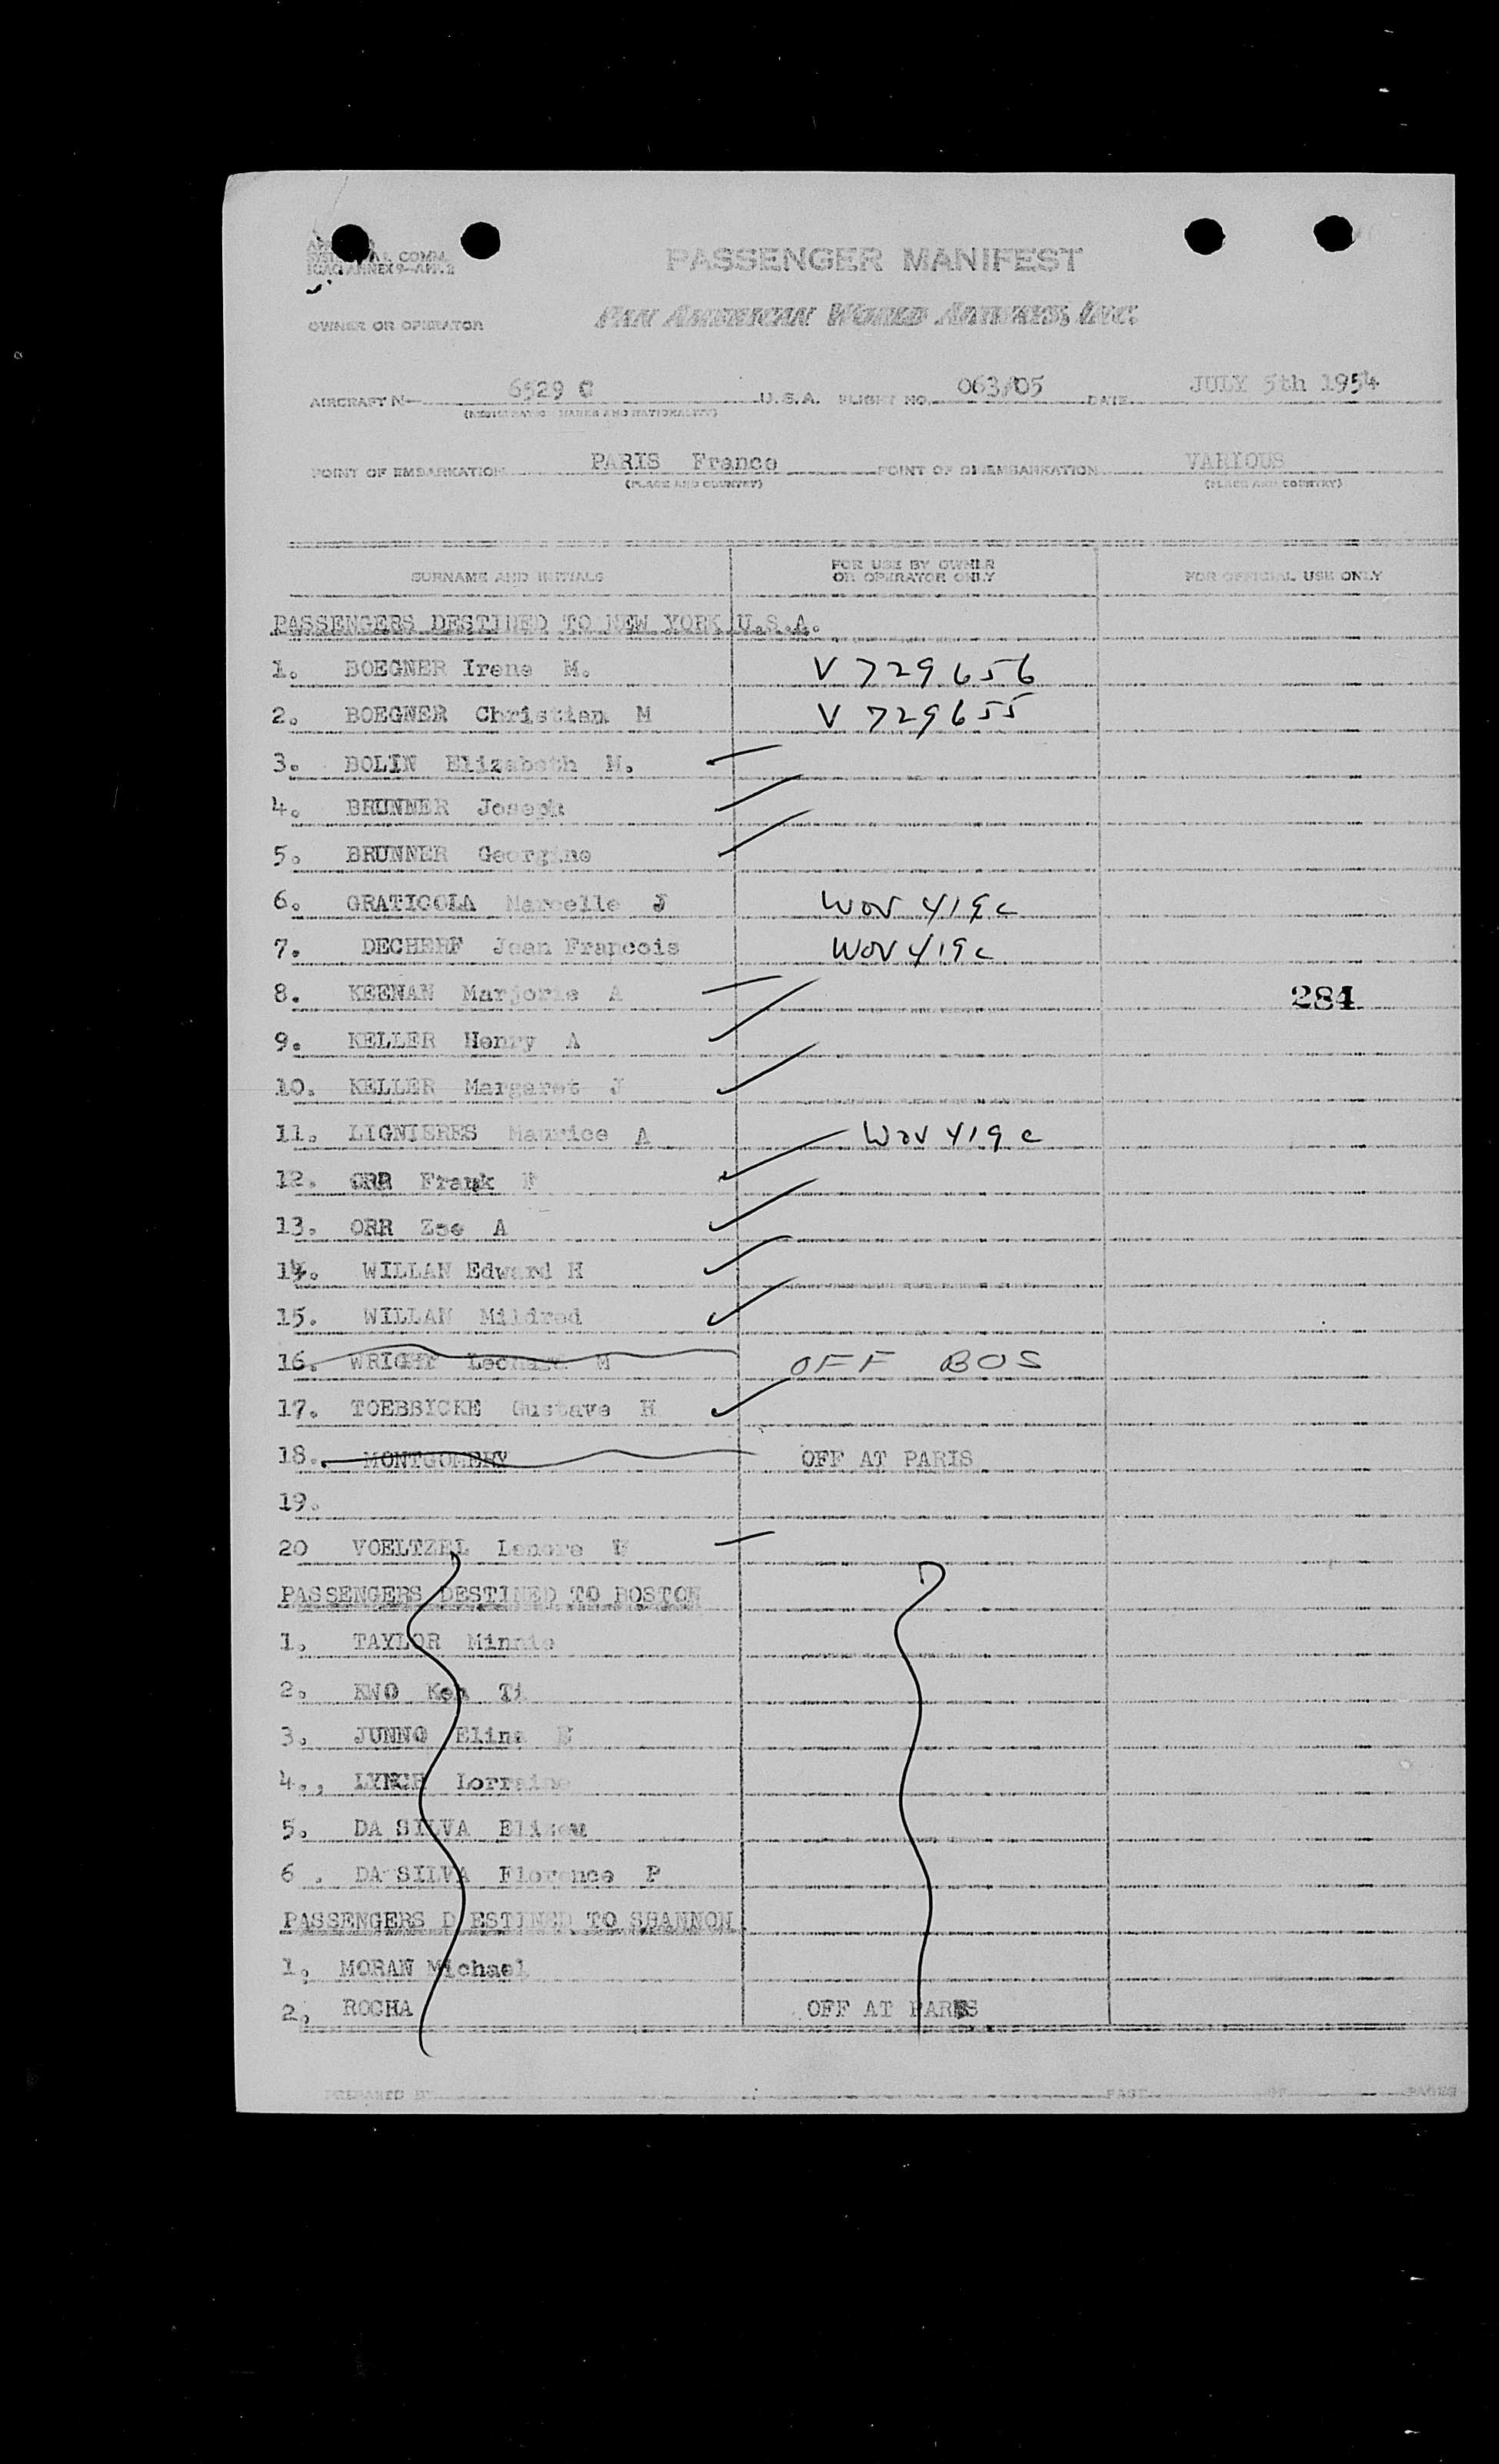 PASSENGER MANIFEST
COMM.
ICAO ANNEX 9—APP. 2
OWNER OR OPERATOR PAN AMERICAN WORLD AIRWAYS, INC.
AIRCRAFT N— 6529 C U.S.A. FLIGHT NO. 063/05 DATE JULY 5th 1954
(REGISTRATION MARKS AND NATIONALITY)
POINT OF EMBARKATION PARIS France POINT OF DISEMBARKATION VARIOUS
(PLACE AND COUNTRY) (PLACE AND COUNTRY)
SURNAME AND INITIALS FOR USE BY OWNER OR OPERATOR ONLY FOR OFFICIAL USE ONLY
PASSENGERS DESTINED TO NEW YORK U.S.A.
1. BOEGNER Irene M. V 729656
2. BOEGNER Christian M V 729655
3. BOLIN Elizabeth M.
4. BRUNNER Joseph
5. BRUNNER Georgine
6. GRATICOLA Marcelle J WOV 419c
7. DECHERF Jean Francois WOV 419c
8. KEENAN Marjorie A 284
9. KELLER Henry A
10. KELLER Margaret J
11. LIGNIERES Maurice A WOV 419c
12. ORR Frank F
13. ORR Zoe A
14. WILLAN Edward H
15. WILLAN Mildred
16. WRIGHT Leonard M OFF BOS
17. TOEBBICKE Gustave H
18. MONTGOMERY OFF AT PARIS
19.
20 VOELTZEL Lenore
PASSENGERS DESTINED TO BOSTON
1. TAYLOR Minnie
2. KWO Ken Ti
3. JUNNO Elina
4., LYNCH Lorraine
5. DA SILVA
6 . DA SILVA Florence P
PASSENGERS D ESTINED TO SHANNON.
1. MORAN Michael
2. ROCHA OFF AT PARIS
PREPARED BY PAGE OF PAGES